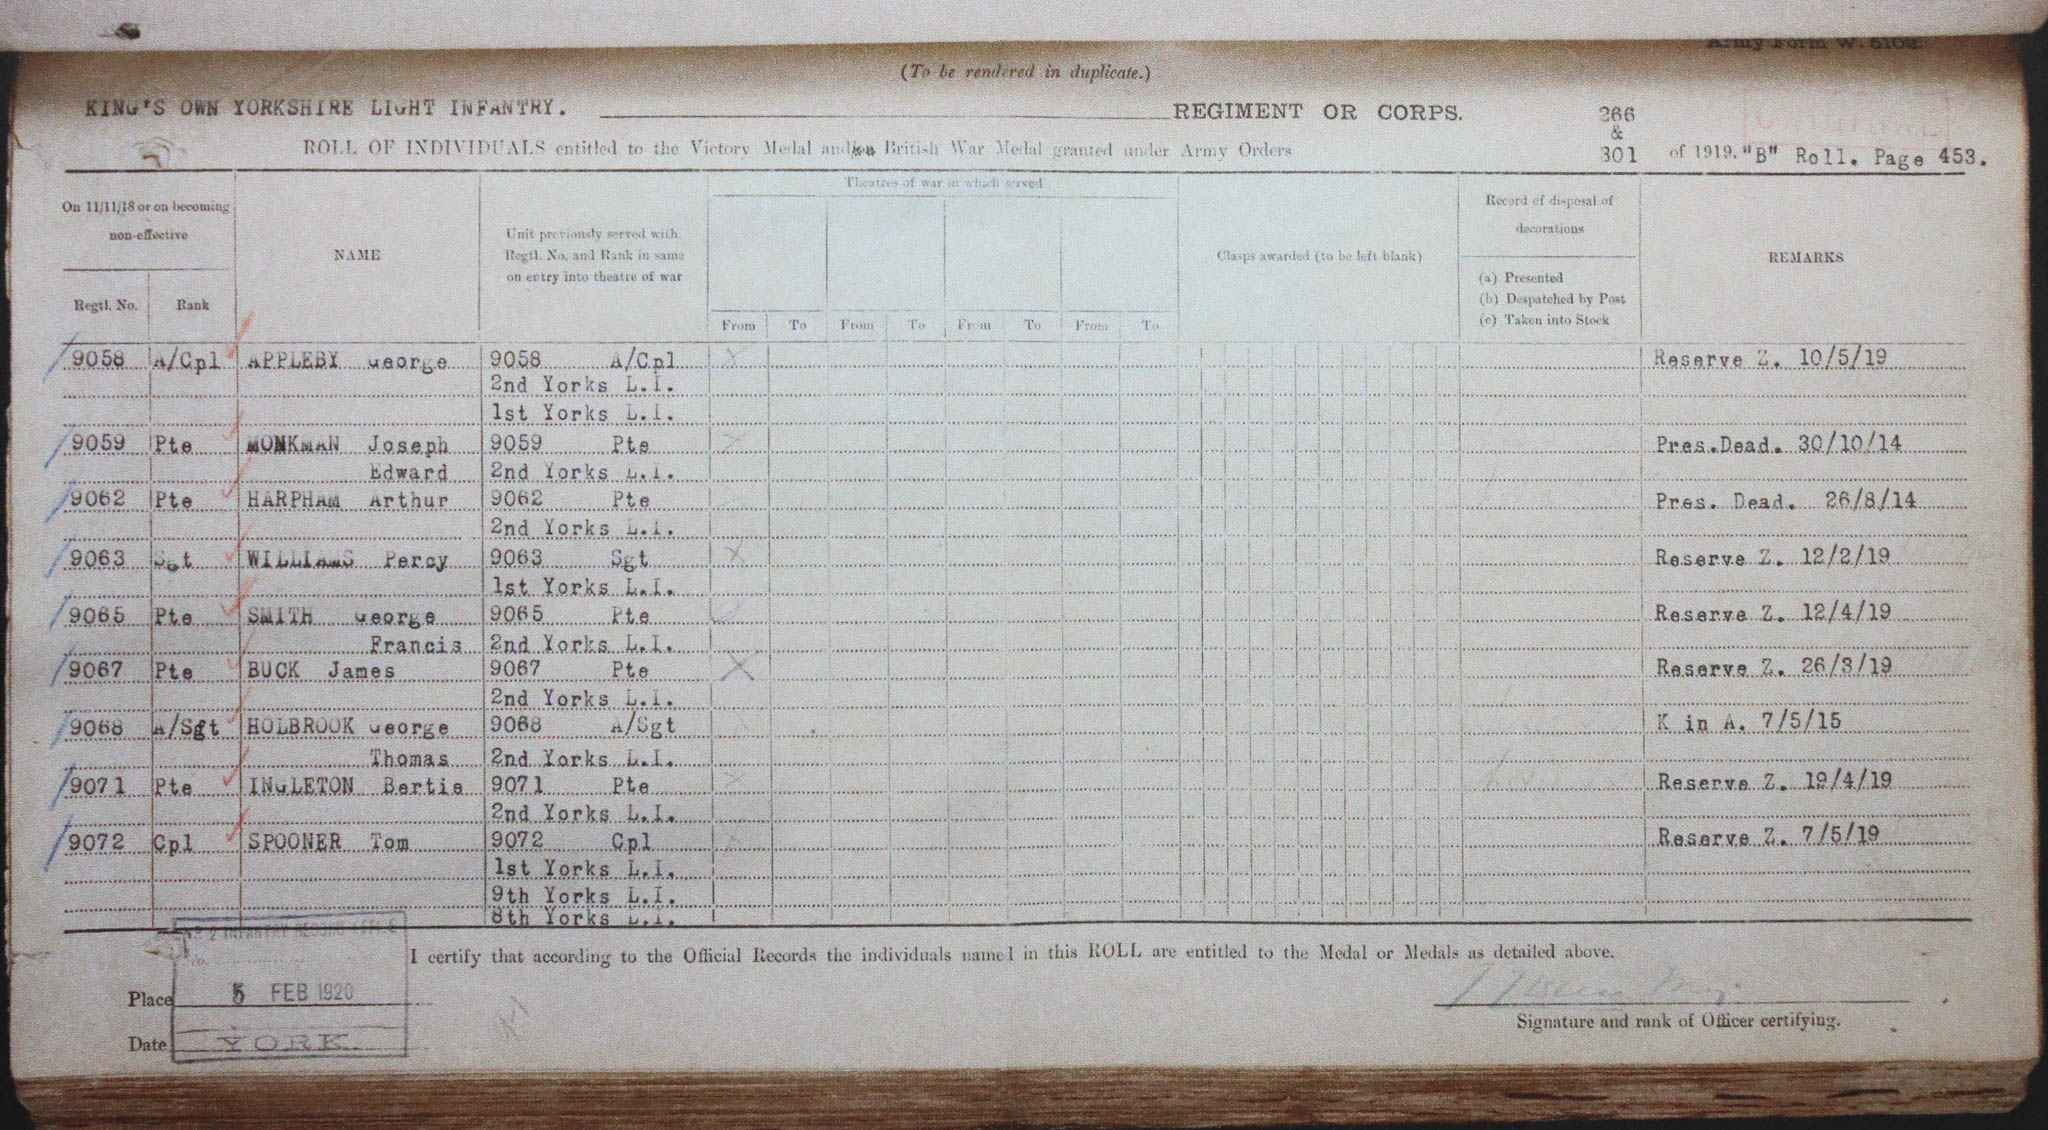 Army Form W. 5102.
(To be rendered in duplicate.)
KING'S OWN YORKSHIRE LIGHT INFANTRY. REGIMENT OR CORPS. 266
&
ROLL OF INDIVIDUALS entitled to the Victory Medal and/or British War Medal granted under Army Orders 301 of 1919. "B" Roll. Page 453.
On 11/11/18 or on becoming non-effective
Regtl. No.
Rank
NAME
Unit previously served with. Regtl. No. and Rank in same on entry into theatre of war
Theatres of war in which served
From To From To From To From To
Clasps awarded (to be left blank)
Record of disposal of decorations
(a) Presented
(b) Despatched by Post
(c) Taken into Stock
REMARKS
9058 A/Cpl APPLEBY George 9058 A/Cpl X Reserve Z. 10/5/19
2nd Yorks L.I.
1st Yorks L.I.
9059 Pte MONKMAN Joseph 9059 Pte X Pres.Dead. 30/10/14
Edward 2nd Yorks L.I.
9062 Pte HARPHAM Arthur 9062 Pte Pres. Dead. 26/8/14
2nd Yorks L.I.
9063 Sgt WILLIAMS Percy 9063 Sgt X Reserve Z. 12/2/19
1st Yorks L.I.
9065 Pte SMITH George 9065 Pte Reserve Z. 12/4/19
Francis 2nd Yorks L.I.
9067 Pte BUCK James 9067 Pte X Reserve Z. 26/3/19
2nd Yorks L.I.
9068 A/Sgt HOLBROOK George 9068 A/Sgt K in A. 7/5/15
Thomas 2nd Yorks L.I.
9071 Pte INGLETON Bertie 9071 Pte X Reserve Z. 19/4/19
2nd Yorks L.I.
9072 Cpl SPOONER Tom 9072 Cpl X Reserve Z. 7/5/19
1st Yorks L.I.
9th Yorks L.I.
8th Yorks L.I.
No. 2 INFANTRY RECORD OFFICE
No.
I certify that according to the Official Records the individuals named in this ROLL are entitled to the Medal or Medals as detailed above.
Place 5 FEB 1920
Signature and rank of Officer certifying.
Date YORK